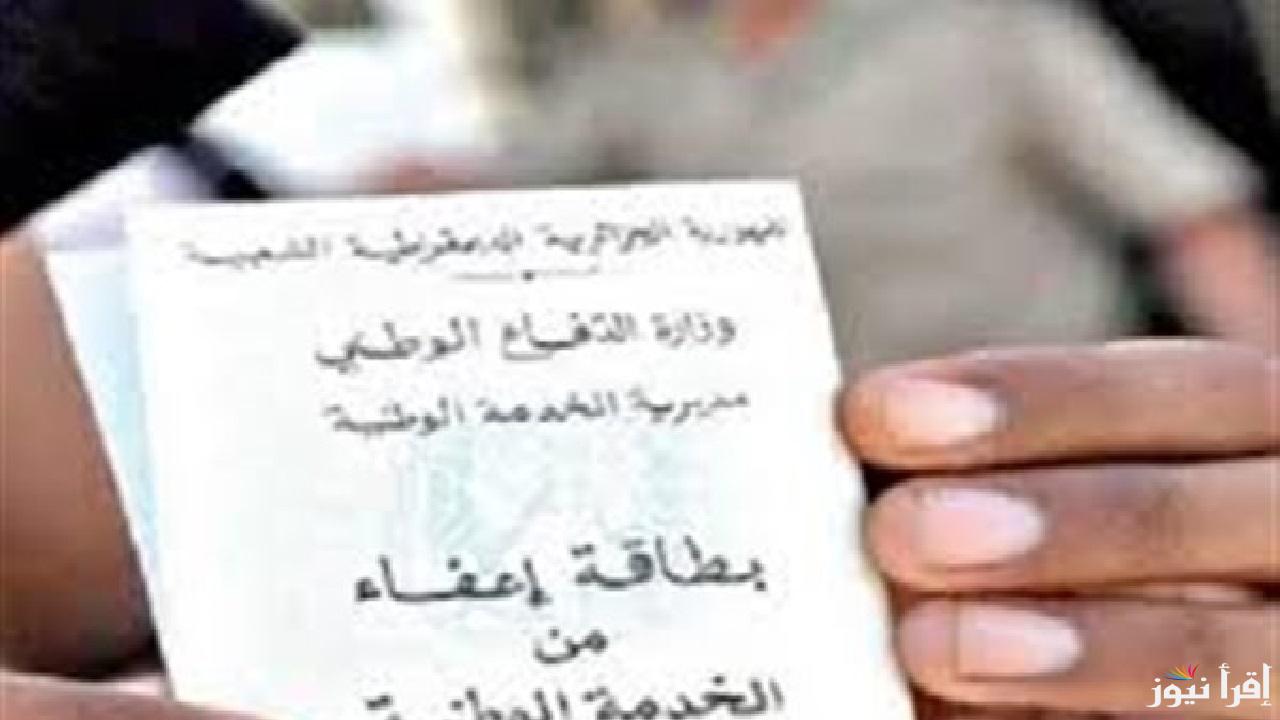 جمهورية الجزائرية الديمقراطية الشعبية
وزارة الدفاع الوطني
مديرية الخدمة الوطنية
بطاقة إعفاء
من
الخدمة الوطنية
إقرأ نيوز